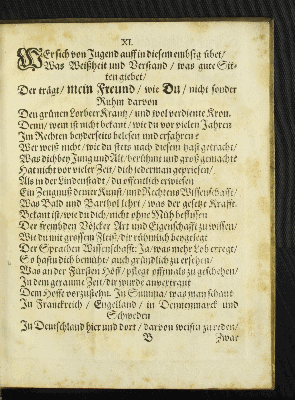 XI.
WEr sich von Jugend auff in diesem embsig übet/
Was Weißheit und Verstand / was gute Sit-
ten giebet/
Der trägt / mein Freund / wie Du / nicht sonder
Ruhm darvon
Den grünen Lorbeer Krantz / und wol verdiente Kron.
Denn / wem ist nicht bekant / wie du vor vielen Jahren
In Rechten beyderseits belesen und erfahren?
Wer weiß nicht / wie du stets nach diesem hast getracht/
Was dich bey Jung und Alt / berühmt und groß gemacht?
Hat nicht vor vieler Zeit / dich jederman gepriesen/
Als in der Lindenstadt / du offentlich erwiesen
Ein Zeugnuß deiner Kunst / und Rechtens Wissenschafft/
Was Bald und Barthol lehrt / was der gesetzt Krafft.
Bekant ist / wie du dich / nicht ohne Müh beflissen
Der frembden Völcker Art und Eigenschafft zu wissen/
Wie du mit grossem Fleiß / dir rühmlich beygelegt
Der Sprachen Wissenschafft. Ja / was mehr Lob erregt/
So hastu dich bemüht / auch gründlich zu ersehen/
Was an der Fürsten Höff / pflegt offtmals zu geschehen/
In dem geraume Zeit / dir wurde anvertraut
Dem Hoffe vorzustehn. In Summa / was man schaut
In Franckreich / Engelland / in Dennenmarck und
Schweden
In Deutschland hier und dort / darvon weistu zu reden/
B
Zwar